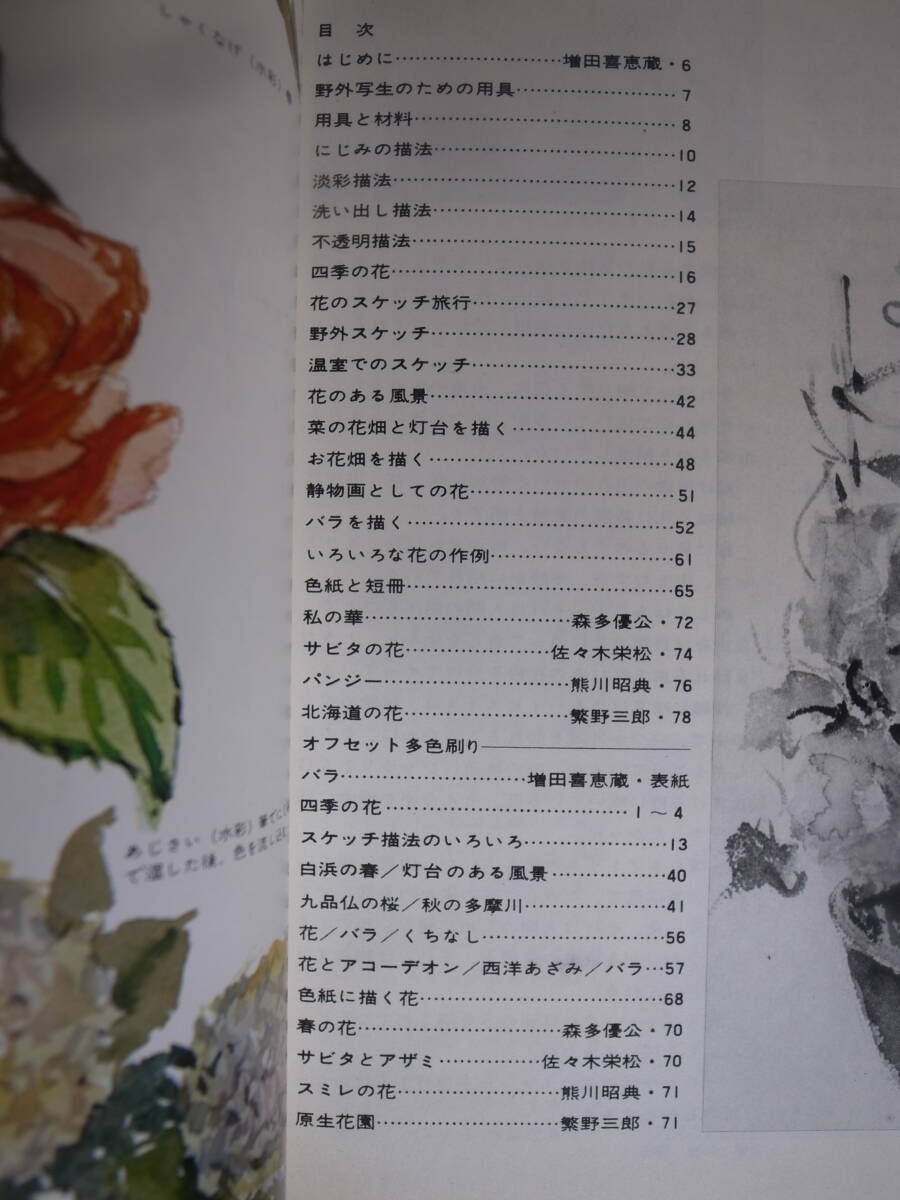 しゃくなげ（水彩）
あじさい（水彩）筆で
で湿した後、色を流し
目 次
はじめに……………………増田喜恵蔵・6
野外写生のための用具……………………7
用具と材料……………………8
にじみの描法……………………10
淡彩描法……………………12
洗い出し描法……………………14
不透明描法……………………15
四季の花……………………16
花のスケッチ旅行……………………27
野外スケッチ……………………28
温室でのスケッチ……………………33
花のある風景……………………42
菜の花畑と灯台を描く……………………44
お花畑を描く……………………48
静物画としての花……………………51
バラを描く……………………52
いろいろな花の作例……………………61
色紙と短冊……………………65
私の華……………………森多優公・72
サビタの花……………………佐々木栄松・74
パンジー……………………熊川昭典・76
北海道の花……………………繁野三郎・78
オフセット多色刷り
バラ……………………増田喜恵蔵・表紙
四季の花……………………1～4
スケッチ描法のいろいろ……………………13
白浜の春／灯台のある風景……………………40
九品仏の桜／秋の多摩川……………………41
花／バラ／くちなし……………………56
花とアコーデオン／西洋あざみ／バラ…57
色紙に描く花……………………68
春の花……………………森多優公・70
サビタとアザミ……………………佐々木栄松・70
スミレの花……………………熊川昭典・71
原生花園……………………繁野三郎・71